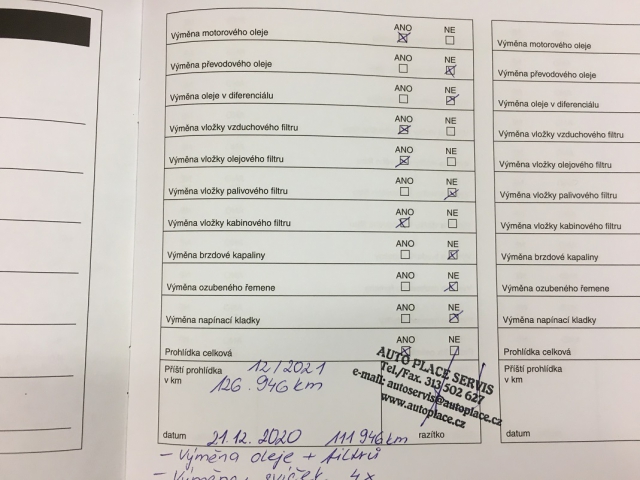 ANO NE
Výměna motorového oleje
ANO NE
Výměna převodového oleje
ANO NE
Výměna oleje v diferenciálu
ANO NE
Výměna vložky vzduchového filtru
ANO NE
Výměna vložky olejového filtru
ANO NE
Výměna vložky palivového filtru
ANO NE
Výměna vložky kabinového filtru
ANO NE
Výměna brzdové kapaliny
ANO NE
Výměna ozubeného řemene
ANO NE
Výměna napínací kladky
ANO NE
Prohlídka celková
Příští prohlídka 12/2021
v km 126.946 km
AUTO PLACE SERVIS
Tel./Fax. 313 502 627
e-mail: autoservis@autoplace.cz
www.autoplace.cz
datum 21.12.2020 111 946 km razítko
- Výměna oleje + filtrů
- Výměna svíček 4x
Výměna motorového oleje
Výměna převodového oleje
Výměna oleje v diferenciálu
Výměna vložky vzduchového filtru
Výměna vložky olejového filtru
Výměna vložky palivového filtru
Výměna vložky kabinového filtru
Výměna brzdové kapaliny
Výměna ozubeného řemene
Výměna napínací kladky
Prohlídka celková
Příští prohlídka
v km
datum